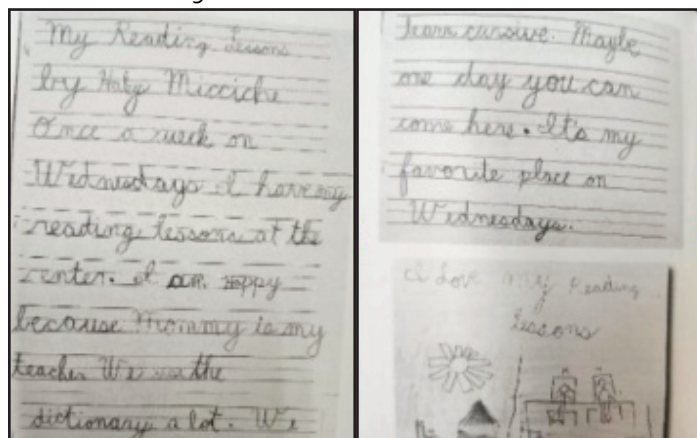 My Reading Lessons
by Katy Micciche
Once a week on
Wednesdays I have my
reading lessons at the
center. I am happy
because Mommy is my
teacher We use the
dictionary a lot. We
learn cursive. Maybe
one day you can
come here. It's my
favorite place on
Wednesdays.
I Love my Reading
lessons